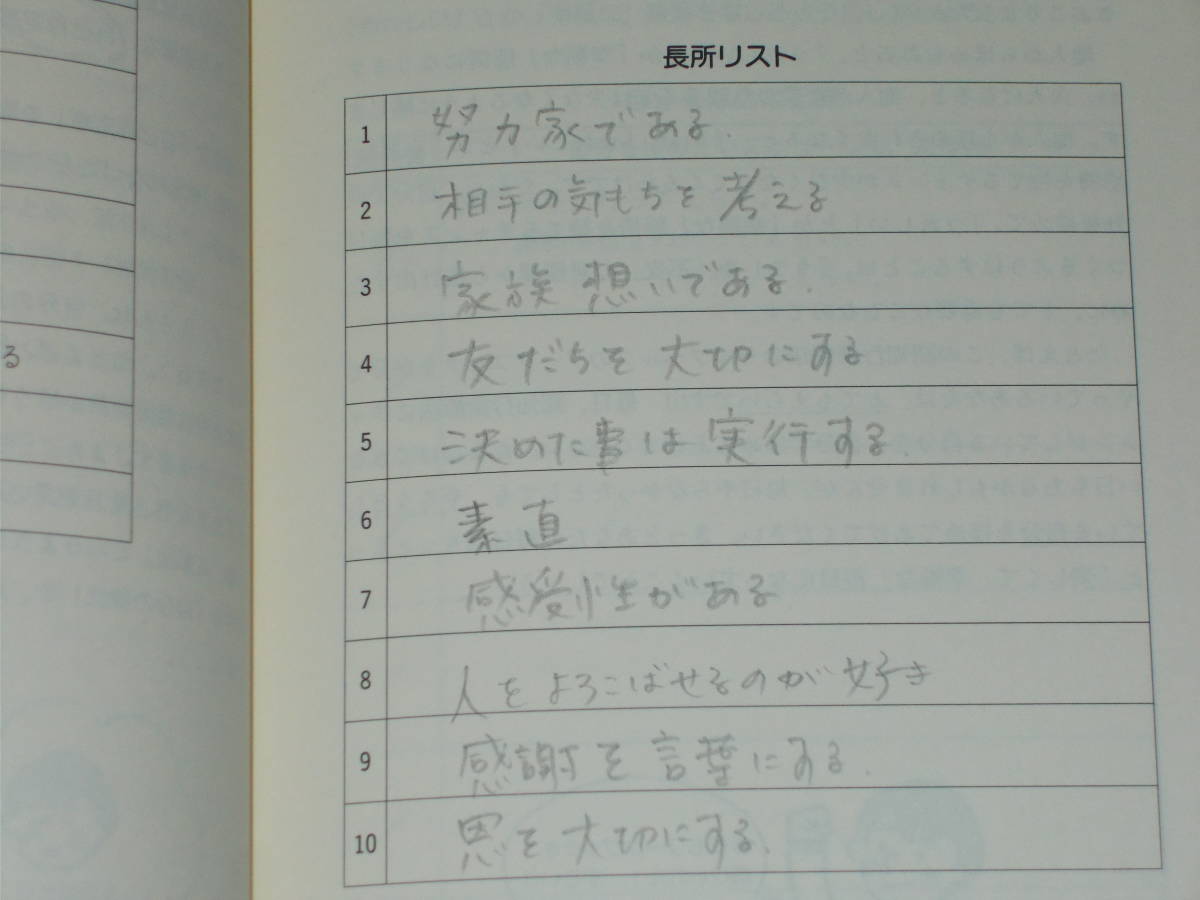 長所リスト
1 努力家である.
2 相手の気もちを考える
3 家族想いである.
4 友だちを大切にする
5 決めた事は実行する
6 素直
7 感受性がある
8 人をよろこばせるのが好き
9 感謝を言葉にする.
10 恩を大切にする.
る